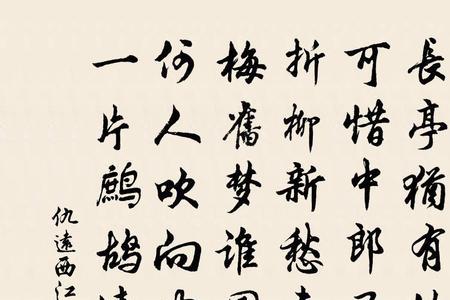 長亭猶有
可惜中郎
折柳新愁
梅舊梦誰
何人吹向
一片鷓鴣
仇遠西江